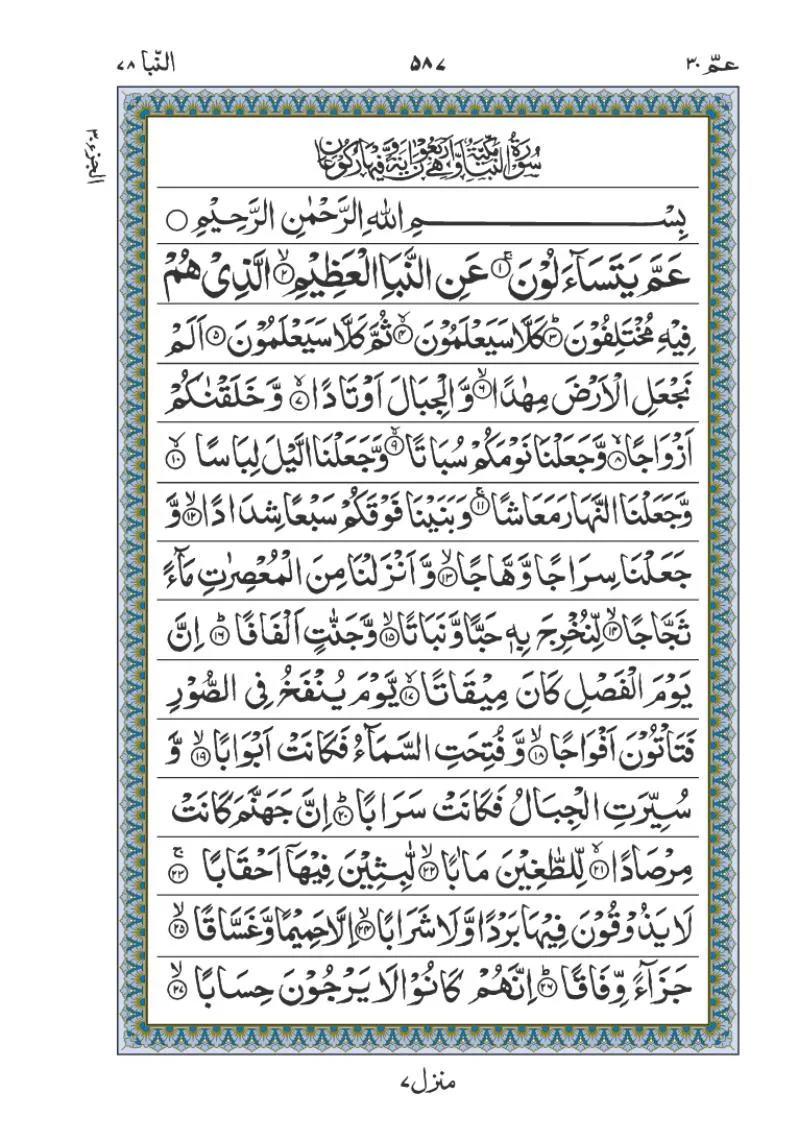 عمّ ۳۰
۵۸۷
النّبا ۷۸
الجزء ۳۰
سُوْرَةُ النَّبَاِ مَكِّيَّةٌ وَّهِيَ اَرْبَعُوْنَ اٰيَةً وَّفِيْهَا رُكُوْعَانِ
بِسْمِ اللهِ الرَّحْمٰنِ الرَّحِيْمِ ○
عَمَّ يَتَسَآءَلُوْنَ ۚ‏﴿۱﴾ عَنِ النَّبَاِ الْعَظِيْمِ ۙ‏﴿۲﴾ الَّذِىْ هُمْ
فِيْهِ مُخْتَلِفُوْنَ ؕ‏﴿۳﴾ كَلَّا سَيَعْلَمُوْنَ ۙ‏﴿۴﴾ ثُمَّ كَلَّا سَيَعْلَمُوْنَ ﴿۵﴾ اَلَمْ
نَجْعَلِ الْاَرْضَ مِهٰدًا ۙ‏﴿۶﴾ وَّالْجِبَالَ اَوْتَادًا ۙ‏﴿۷﴾ وَّخَلَقْنٰكُمْ
اَزْوَاجًا ۙ‏﴿۸﴾ وَّجَعَلْنَا نَوْمَكُمْ سُبَاتًا ۙ‏﴿۹﴾ وَّجَعَلْنَا الَّيْلَ لِبَاسًا ۙ‏﴿۱۰﴾
وَّجَعَلْنَا النَّهَارَ مَعَاشًا ۚ‏﴿۱۱﴾ وَبَنَيْنَا فَوْقَكُمْ سَبْعًا شِدَادًا ۙ‏﴿۱۲﴾ وَّ
جَعَلْنَا سِرَاجًا وَّهَّاجًا ۙ‏﴿۱۳﴾ وَّاَنْزَلْنَا مِنَ الْمُعْصِرٰتِ مَآءً
ثَجَّاجًا ۙ‏﴿۱۴﴾ لِّنُخْرِجَ بِهٖ حَبًّا وَّنَبَاتًا ۙ‏﴿۱۵﴾ وَّجَنّٰتٍ اَلْفَافًا ؕ‏﴿۱۶﴾ اِنَّ
يَوْمَ الْفَصْلِ كَانَ مِيْقَاتًا ۙ‏﴿۱۷﴾ يَّوْمَ يُنْفَخُ فِى الصُّوْرِ
فَتَاْتُوْنَ اَفْوَاجًا ۙ‏﴿۱۸﴾ وَّفُتِحَتِ السَّمَآءُ فَكَانَتْ اَبْوَابًا ۙ‏﴿۱۹﴾ وَّ
سُيِّرَتِ الْجِبَالُ فَكَانَتْ سَرَابًا ؕ‏﴿۲۰﴾ اِنَّ جَهَنَّمَ كَانَتْ
مِرْصَادًا ۙ‏﴿۲۱﴾ لِّلطّٰغِيْنَ مَاٰبًا ۙ‏﴿۲۲﴾ لّٰبِثِيْنَ فِيْهَاۤ اَحْقَابًا ۚ‏﴿۲۳﴾
لَا يَذُوْقُوْنَ فِيْهَا بَرْدًا وَّلَا شَرَابًا ۙ‏﴿۲۴﴾ اِلَّا حَمِيْمًا وَّغَسَّاقًا ۙ‏﴿۲۵﴾
جَزَآءً وِّفَاقًا ؕ‏﴿۲۶﴾ اِنَّهُمْ كَانُوْا لَا يَرْجُوْنَ حِسَابًا ۙ‏﴿۲۷﴾
منزل ۷